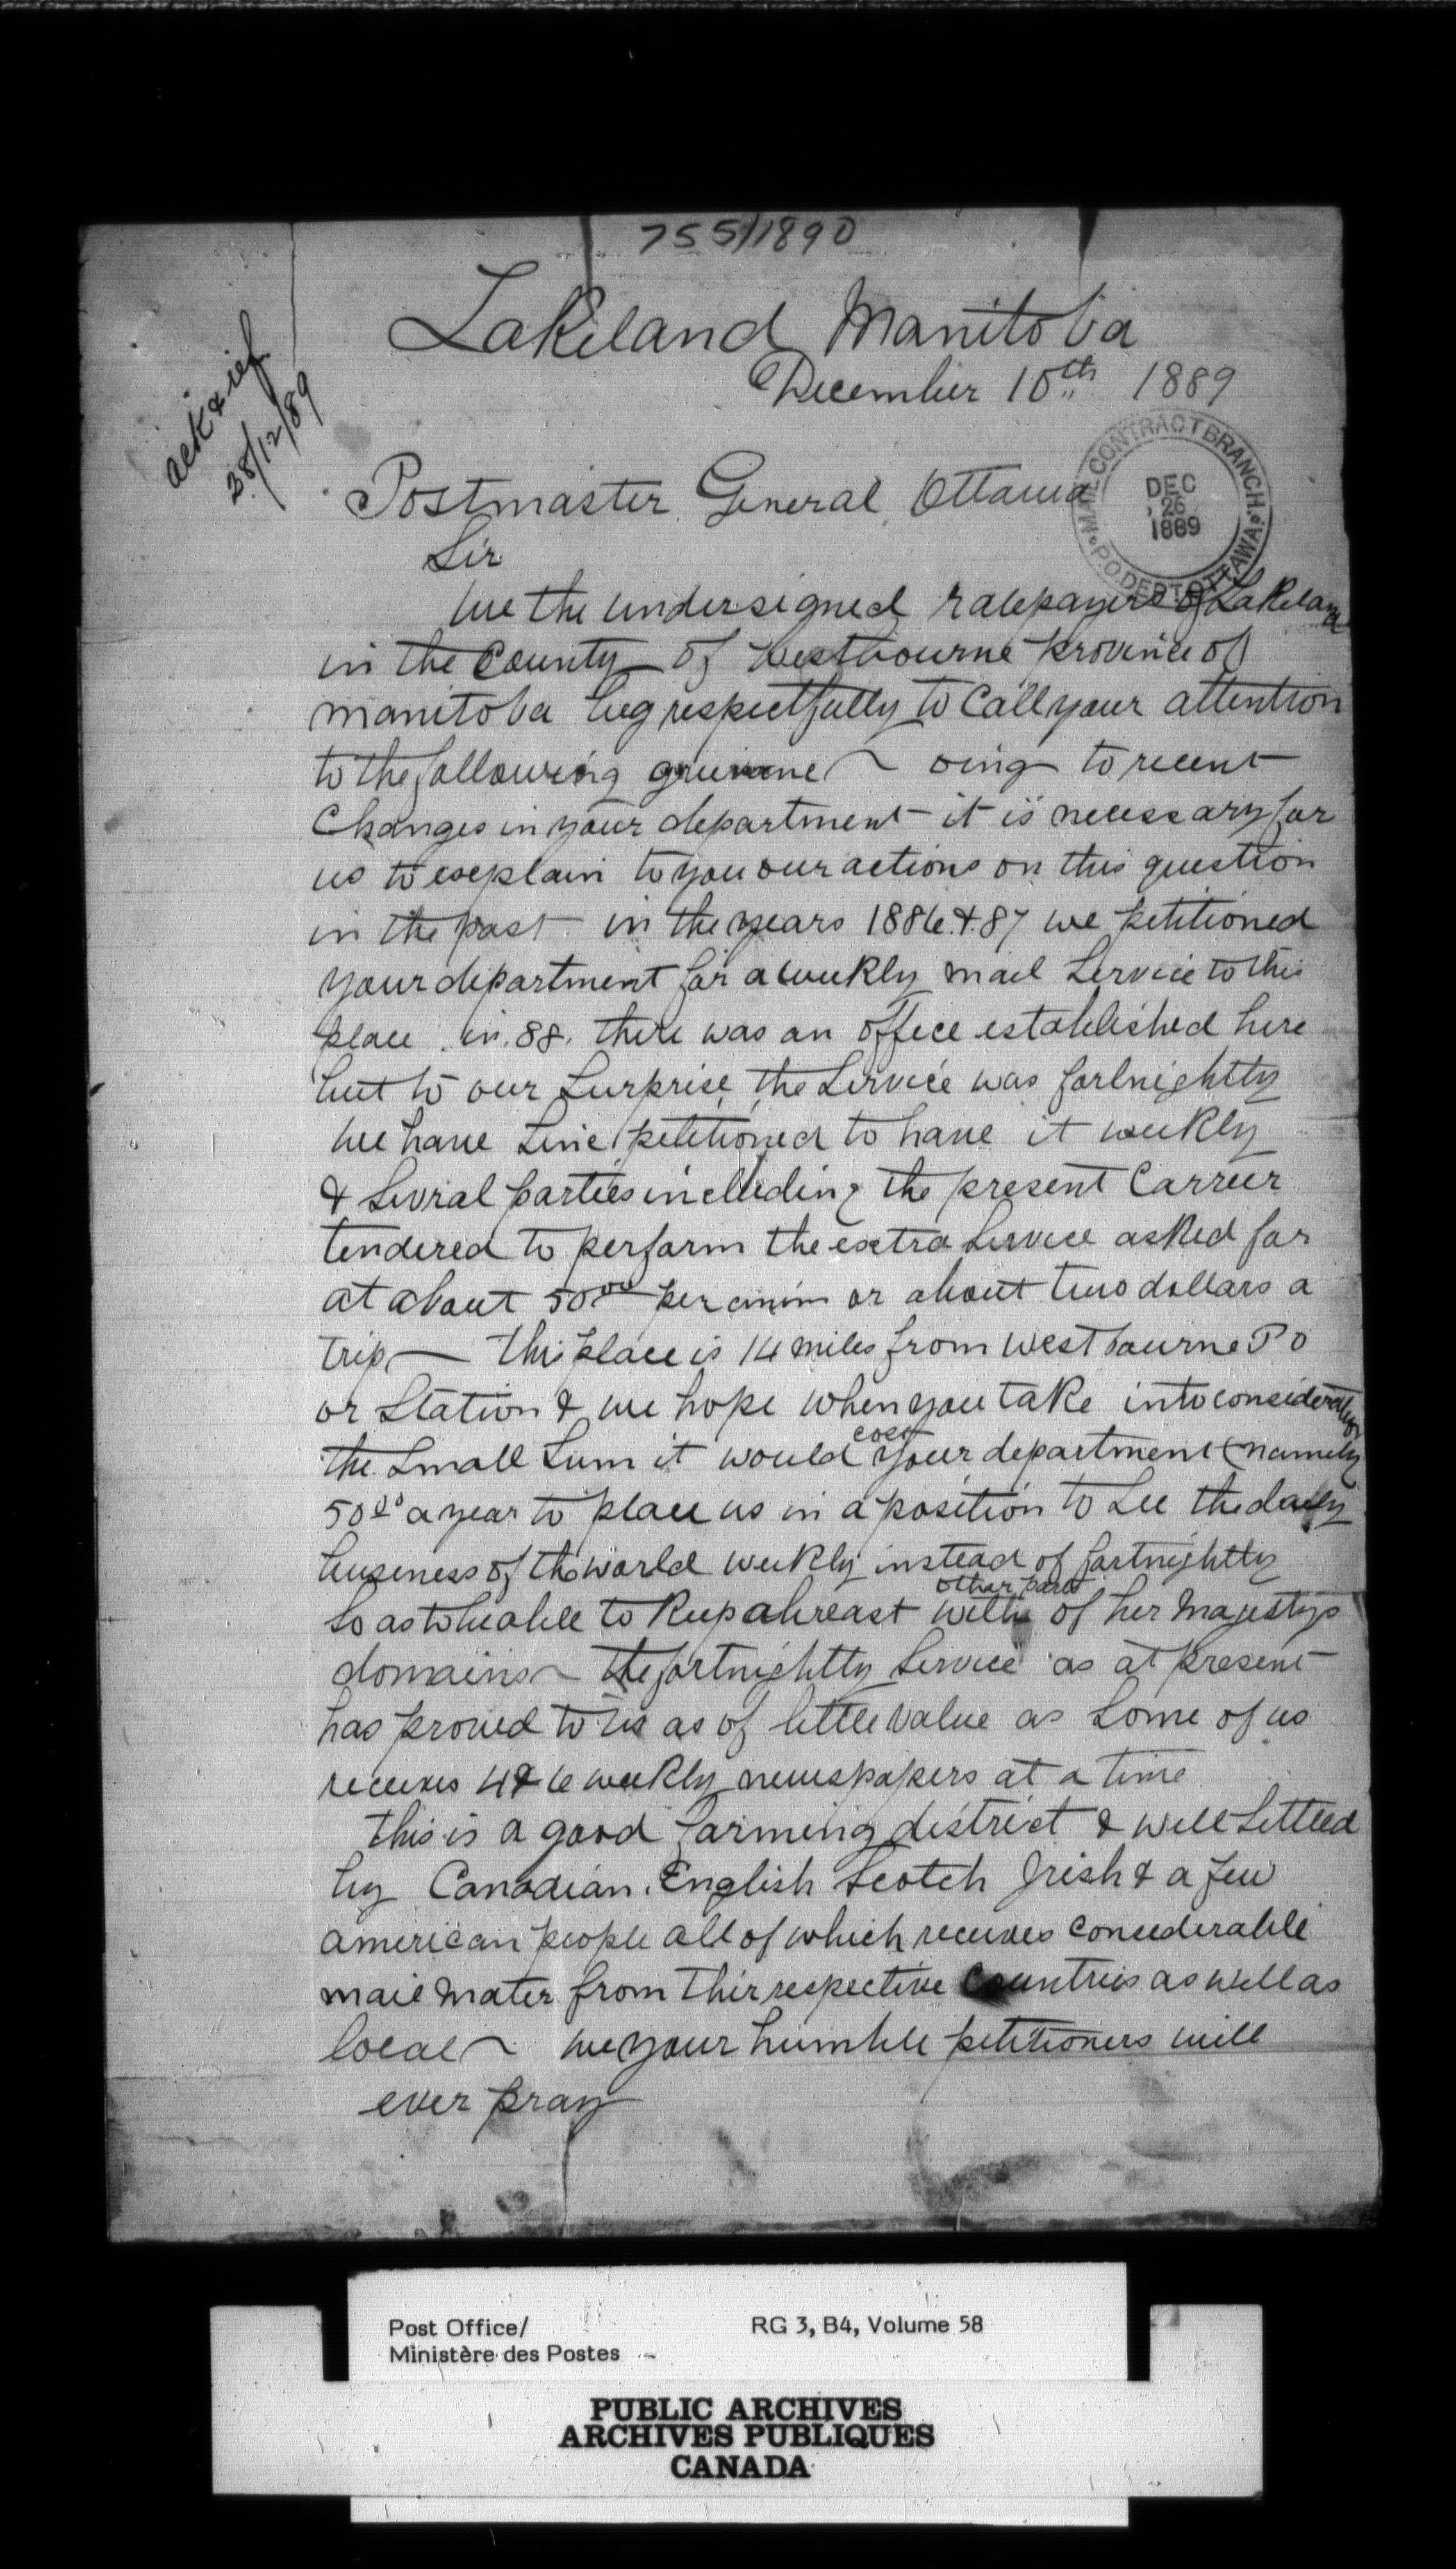 755/1890
Lakeland Manitoba
December 10th 1889
ack & ref
28/12/89
MAIL CONTRACT BRANCH.
P.O. DEPT. OTTAWA
DEC
26
1889
Postmaster General Ottawa
Sir
We the undersigned ratepayers of Lakeland
in the County of Westbourne province of
manitoba beg respectfully to Call your attention
to the following oing to recent
Changes in your department it is necessary for
us to explain to you our actions on this question
in the past in the years 1886.&.87 we petitioned
your department for a weekly mail Service to this
place . in. 88. there was an office established here
but to our Surprise the Service was fortnightly
We have Sine petitioned to have it weekly
& Sevral parties including the present Carrier
tendered to perform the extra Service asked for
at about 50.00 per anim or about two dollars a
trip — this place is 14 miles from westbourne P O
or Station & we hope when you take into consideration
the Small Sum it would cost your department (namely
50.00 a year to place us in a position to See the daily
business of the world weekly instead of fortnightly
So as to be able to Keep abreast with other parts of her Majestys
domains — the fortnightly Service as at present
has proved to us as of little value as Some of us
receives 4 & 6 weekly newspapers at a time
this is a good farming district & well Settled
by Canadian. English Scotch Irish & a few
american people all of which receives considerable
mail mater from thir respective Countries as well as
local — we your humble petitioners will
ever pray
Post Office/
Ministère des Postes
RG 3, B4, Volume 58
PUBLIC ARCHIVES
ARCHIVES PUBLIQUES
CANADA